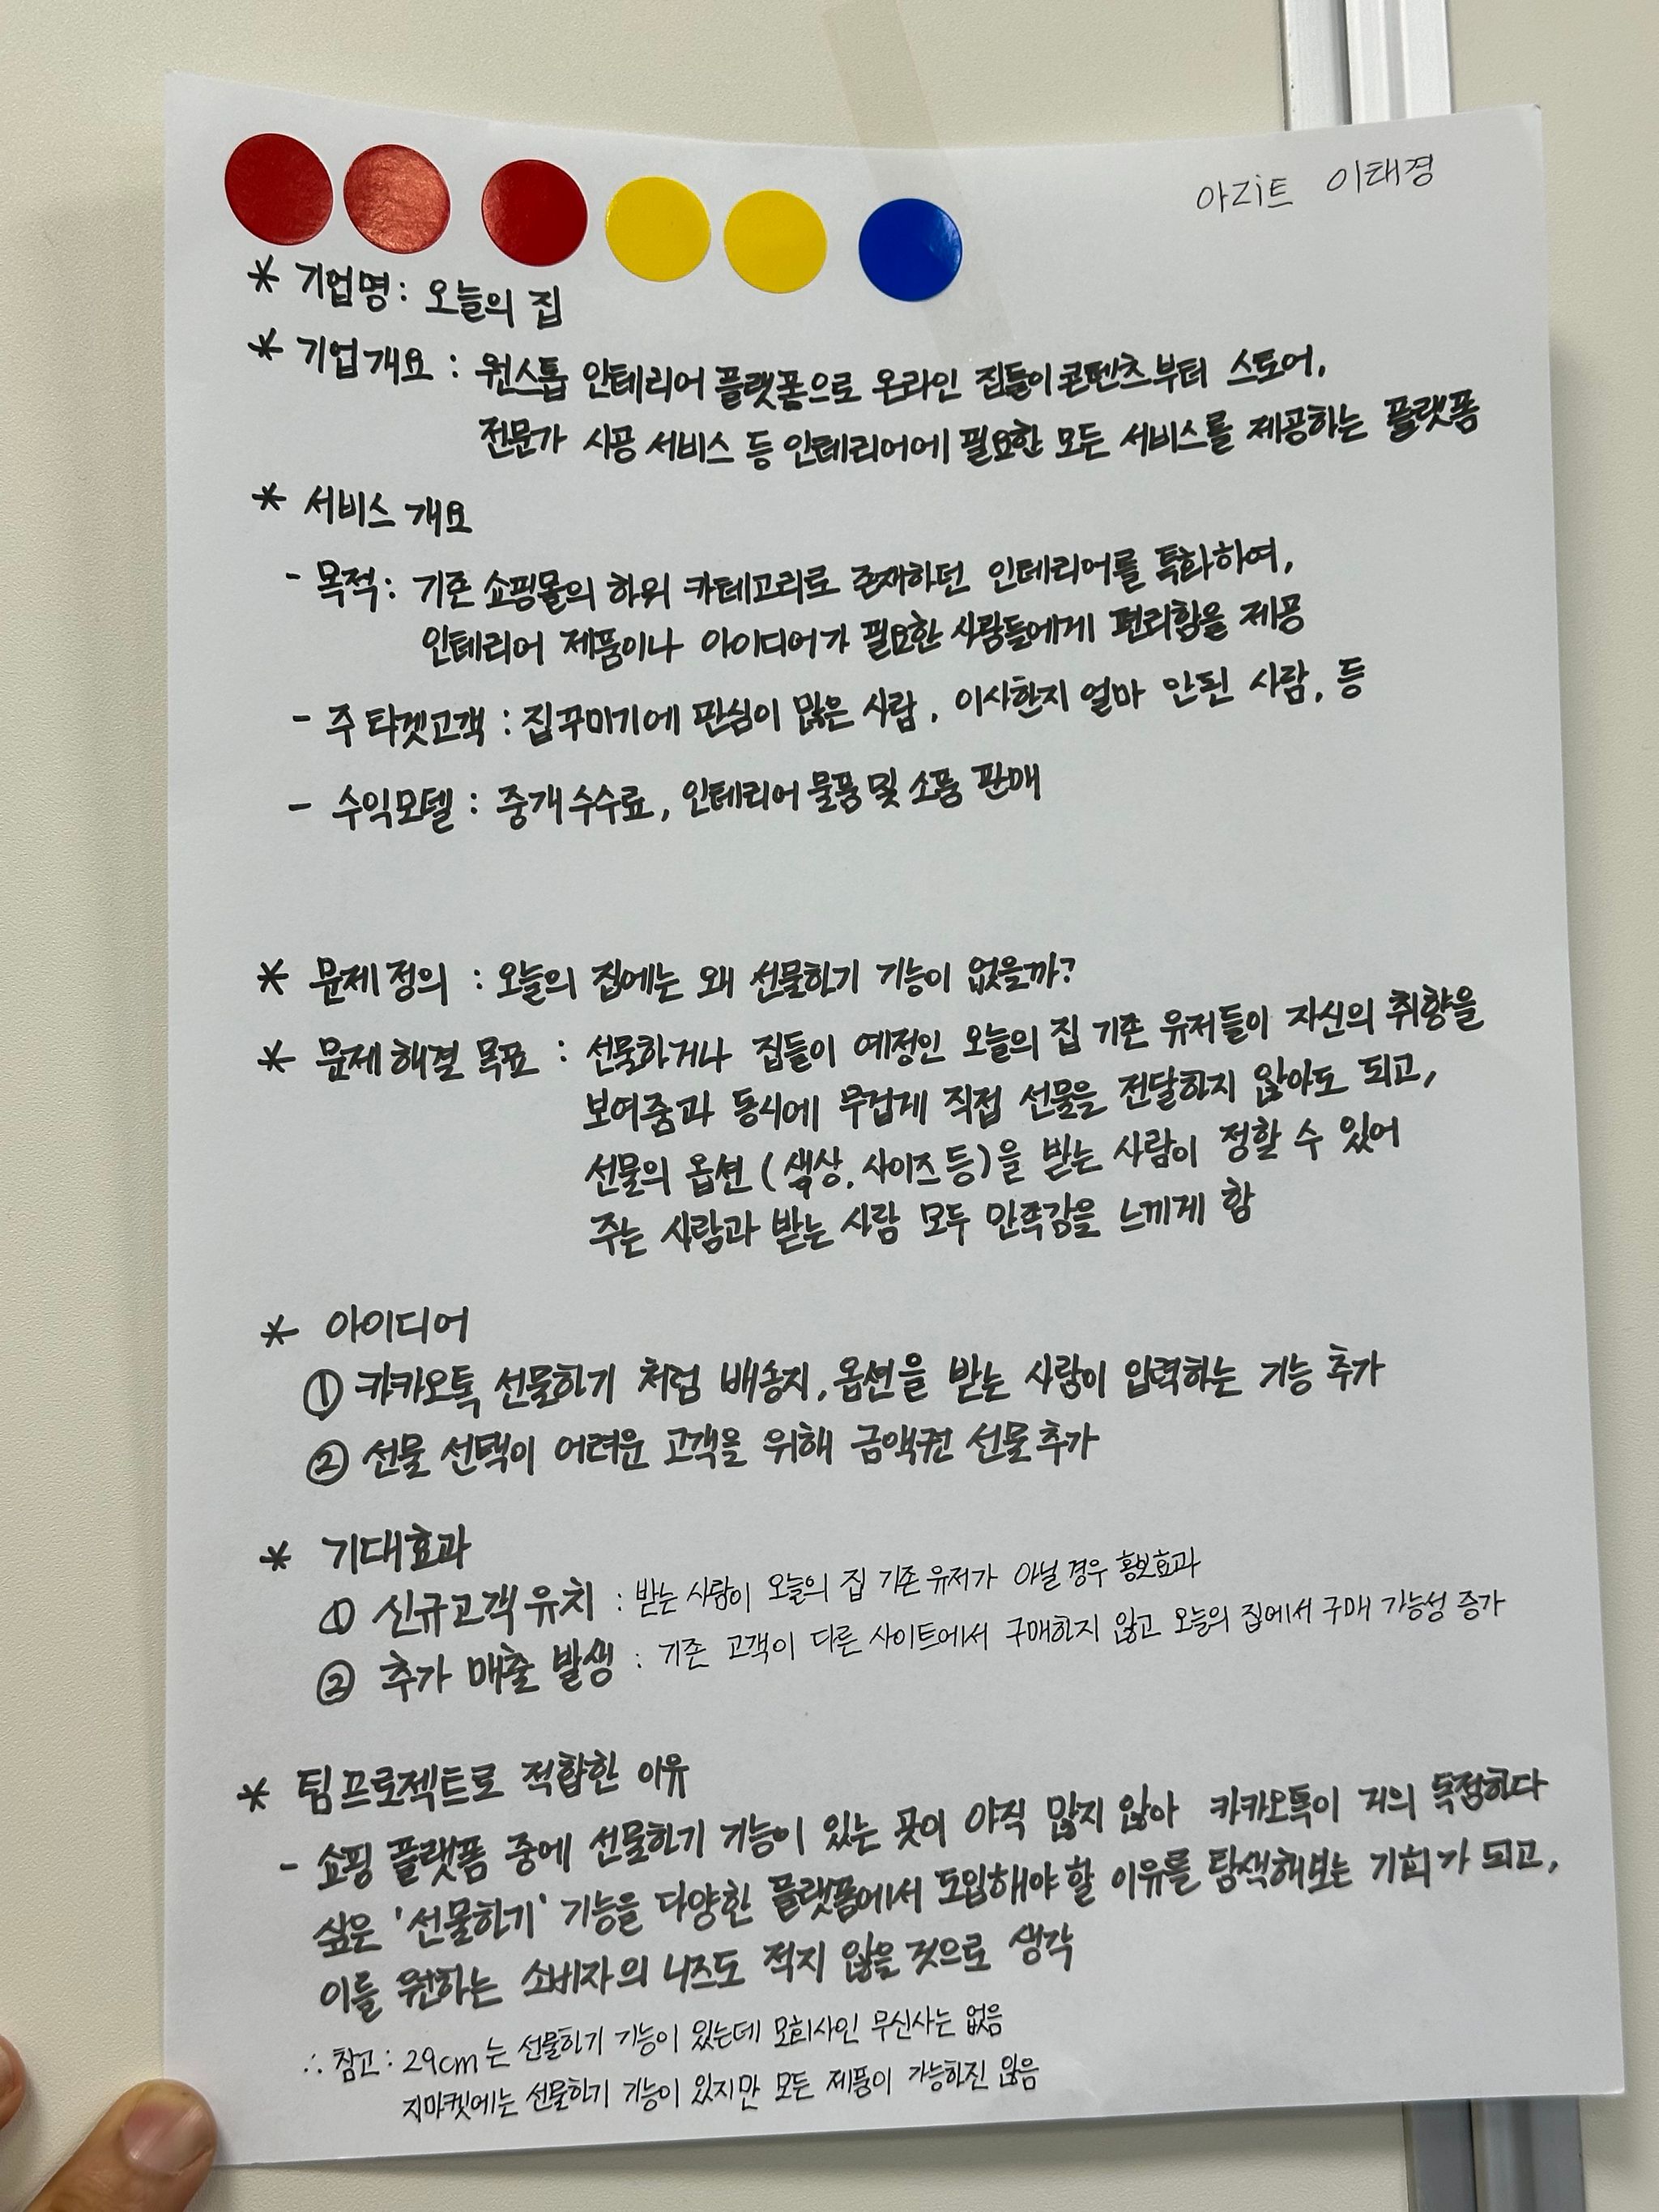 아Zi트 이태경
* 기업명: 오늘의 집
* 기업개요 : 원스톱 인테리어 플랫폼으로 온라인 집들이콘텐츠부터 스토어,
전문가 시공 서비스 등 인테리어에 필요한 모든 서비스를 제공하는 플랫폼
* 서비스 개요
- 목적: 기존 쇼핑몰의 하위 카테고리로 존재하던 인테리어를 특화하여,
인테리어 제품이나 아이디어가 필요한 사람들에게 편리함을 제공
- 주 타겟고객 : 집꾸미기에 관심이 많은 사람, 이사한지 얼마 안된 사람, 등
- 수익모델 : 중개수수료, 인테리어 물품 및 소품 판매
* 문제 정의 : 오늘의 집에는 왜 선물하기 기능이 없을까?
* 문제 해결 목표 : 선물하거나 집들이 예정인 오늘의 집 기존 유저들이 자신의 취향을
보여줌과 동시에 무겁게 직접 선물을 전달하지 않아도 되고,
선물의 옵션 (색상, 사이즈 등)을 받는 사람이 정할 수 있어
주는 사람과 받는 사람 모두 만족감을 느끼게 함
* 아이디어
① 카카오톡 선물하기 처럼 배송지, 옵션을 받는 사람이 입력하는 기능 추가
② 선물 선택이 어려운 고객을 위해 금액권 선물 추가
* 기대효과
① 신규고객 유치 : 받는 사람이 오늘의 집 기존 유저가 아닐 경우 홍보효과
② 추가 매출 발생 : 기존 고객이 다른 사이트에서 구매하지 않고 오늘의 집에서 구매 가능성 증가
* 팀프로젝트로 적합한 이유
- 쇼핑 플랫폼 중에 선물하기 기능이 있는 곳이 아직 많지 않아 카카오톡이 거의 독점하다
싶은 '선물하기' 기능을 다양한 플랫폼에서 도입해야 할 이유를 탐색해보는 기회가 되고,
이를 원하는 소비자의 니즈도 적지 않을 것으로 생각
∴ 참고 : 29cm는 선물하기 기능이 있는데 모회사인 무신사는 없음
지마켓에는 선물하기 기능이 있지만 모든 제품이 가능하진 않음